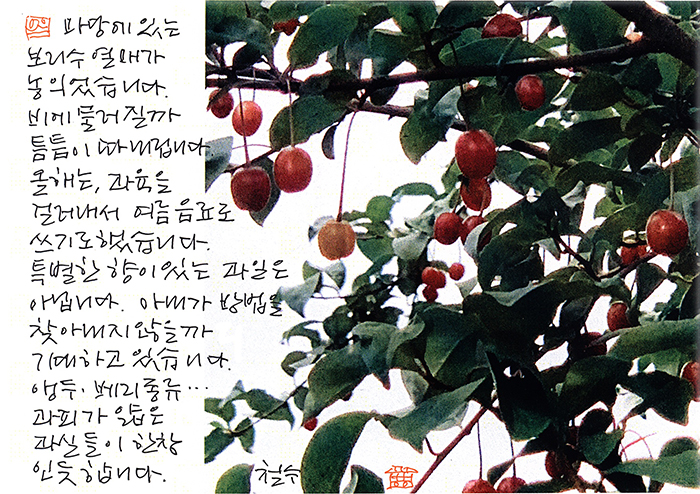 마당에 있는
보리수 열매가
농익었습니다.
비에 물러질까
틈틈이 따내립니다.
올해는, 과육을
걸러내서 여름음료로
쓰기로했습니다.
특별한 향이 있는 과일은
아닙니다. 아내가 방법을
찾아내지 않을까
기대하고 있습니다.
앵두, 베리종류…
과피가 얇은
과실들이 한창
인듯합니다.
철수